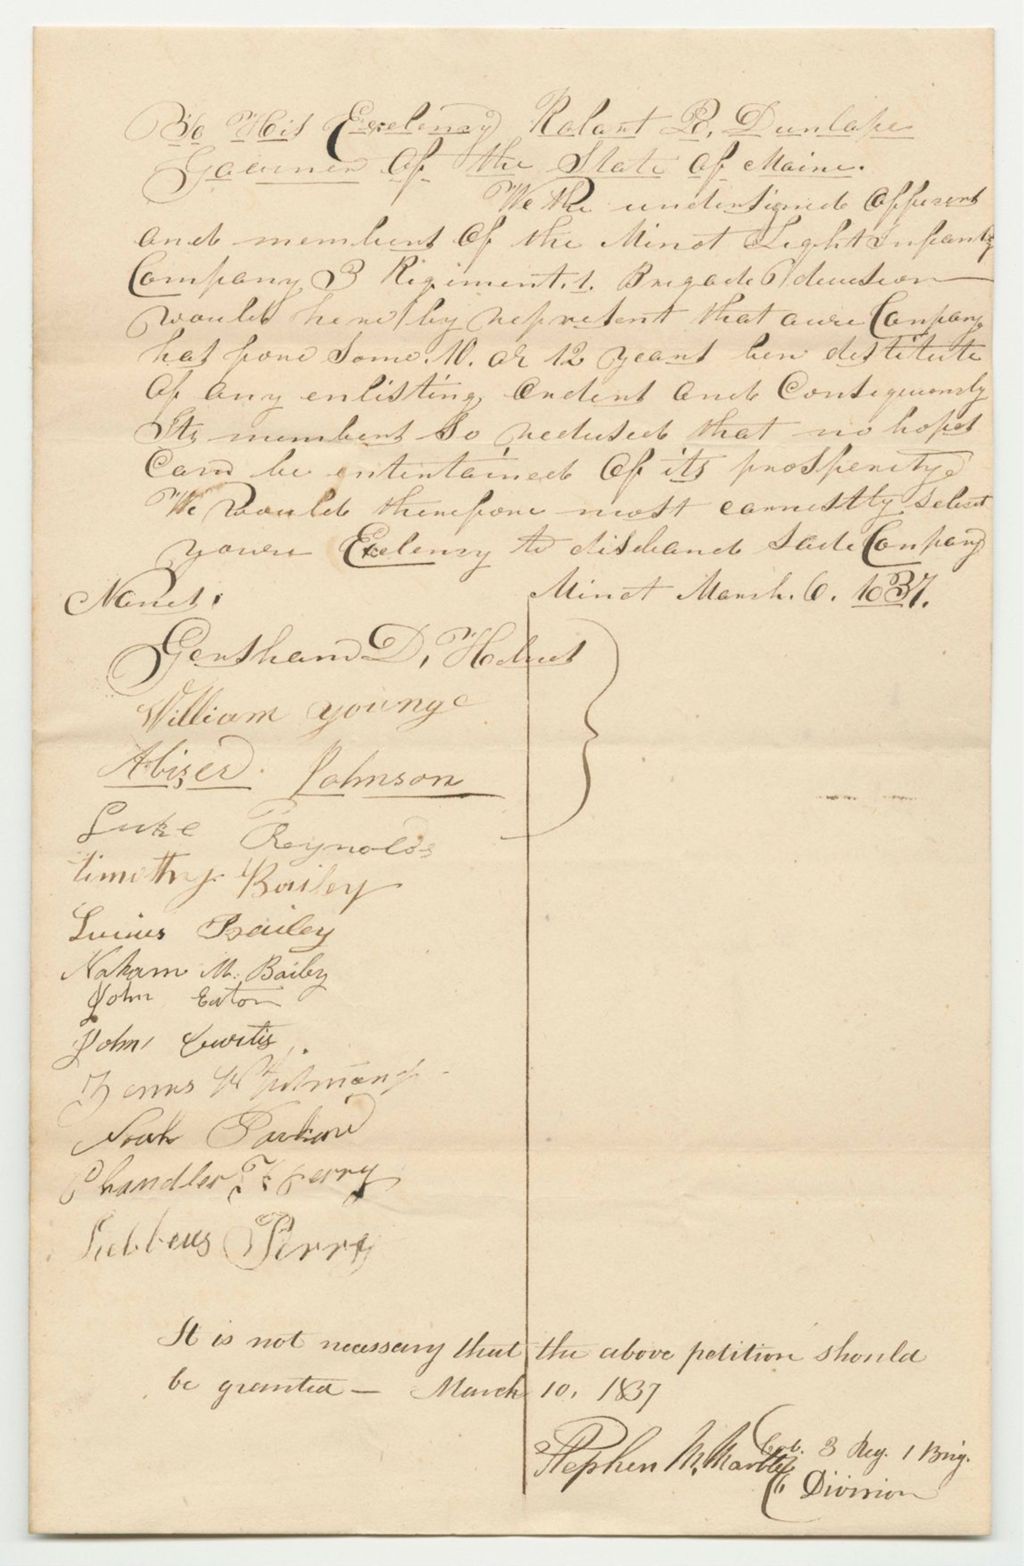 To His Exelency Robart P. Dunlape
Govurner of the State of Maine.
We the undersigned Offisers
and members of the Minot Light Infanty
Company 3 Rigiment. 1. Brigade 6 devision
would here by represent that oure Company
has fore some. 10. or 12 years ben destitute
of any enlisting orders and Consequently
its members so reduced that no hopes
Can be entertained of its prosperity.
We would therefore most earnestly
youre Exelency to disband sade Company
Minot March. 6. 1837.
Names.
Gersham D, Holmes
William younge
Abizer Johnson
Luke Reynolds
timothy Bailey
Lucius Bailey
Naham M. Bailey
John Eaton
John Curtis
Whitman
Noah
Chandler F Perry
Lebbeus Perry
It is not necessary that the above petition should
be granted — March 10, 1837
Stephen M. Marble Col. 3 Reg. 1 Brig.
6 Division